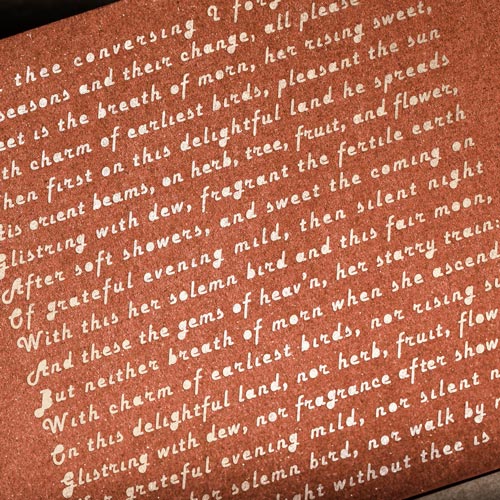 thee conversing I
seasons and their change, all please
is the breath of morn, her rising sweet,
charm of earliest birds, pleasant the sun
first on this delightful land he spreads
orient beams, on herb, tree, fruit, and flower,
Glistring with dew, fragrant the fertile earth
After soft showers, and sweet the coming on
Of grateful evening mild, then silent night
With this her solemn bird and this fair moon,
And these the gems of heav'n, her starry train
But neither breath of morn when she ascend
With charm of earliest birds, nor rising
On this delightful land, nor herb, fruit,
Glistring with dew, nor fragrance after
grateful evening mild, nor silent
her solemn bird, nor walk by
without thee is